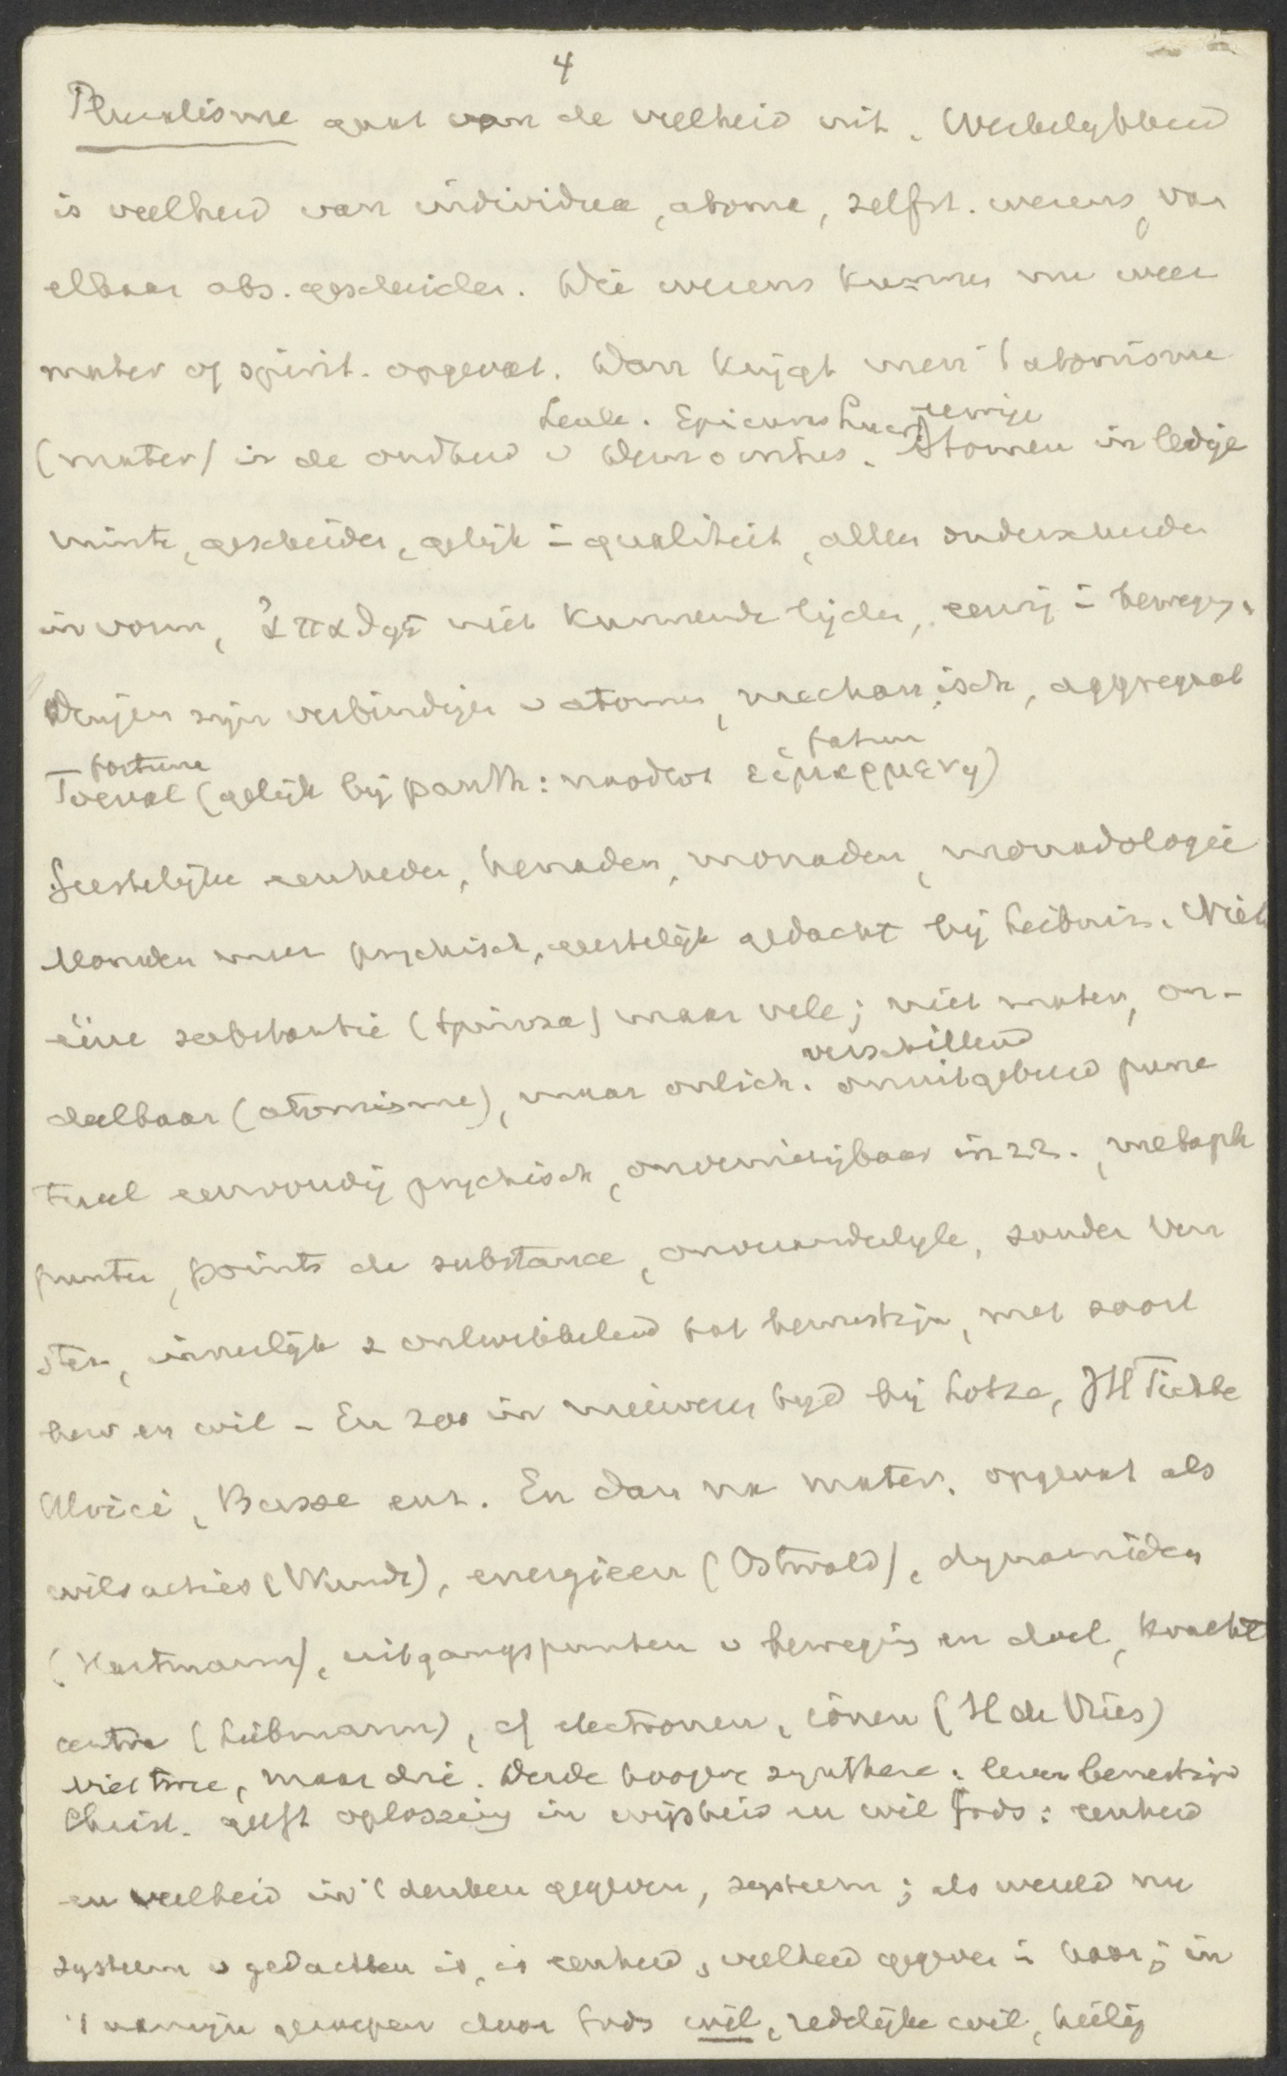 4
Pluralisme gaat van de veelheid uit. Werkelijkheid
is veelheid van individuen, atome, zelfst. wezens, van
elkaar abs. gescheiden. Die wezens kunnen nu weer
mater of spirit. opgevat. Dan krijgt men 't atomisme
Leuk. Epicurus Lucr. eeuwige
(mater) in de oudheid v Democritus. Atomen in ledige
ruimte, gescheiden, gelijk in qualiteit, alleen onderscheiden
in vorm, ἀπαθῆ niet kunnende lijden, eeuwig in beweging.
Dingen zijn verbindingen v atomen, mechanisch, aggregaat
fortuna fatum
Toeval (gelijk bij panth: noodlot εἱμαρμενη)
Geestelijke eenheden, henaden, monaden, monadologie
Monaden meer psychisch, geestelijk gedacht bij Leibniz. Niet
ééne substantie (Spinoza) maar vele; niet mater, on-
verschillend
deelbaar (atomisme), maar onlich. onuitgebreid punc
tueel eenvoudig psychisch, onvernietigbaar in zz., metaph
punten, points de substance, onveranderlijke, zonder ven
sters, innerlijk z ontwikkelend tot bewustzijn, met soort
bew en wil - En zoo in nieuweren tijd bij Lotze, JH Fichte
Ulrici, Busse enz. En dan na mater. opgevat als
wilsacties (Wundt), energieen (Ostwald), dynamiden
(Hartmann), uitgangspunten v beweging en doel, kracht
centra (Liebmann), of electronen, ionen (H de Vries)
niet twee, maar drie. Derde hoogere synthese: leven bewustzijn
Christ. geeft oplossing in wijsheid en wil Gods: eenheid
en veelheid in 't denken gegeven, systeem; als wereld nu
systeem v gedachten is, is eenheid, veelheid gegeven in haar; in
't aanzijn geroepen door Gods wil, redelijke wil, heilig